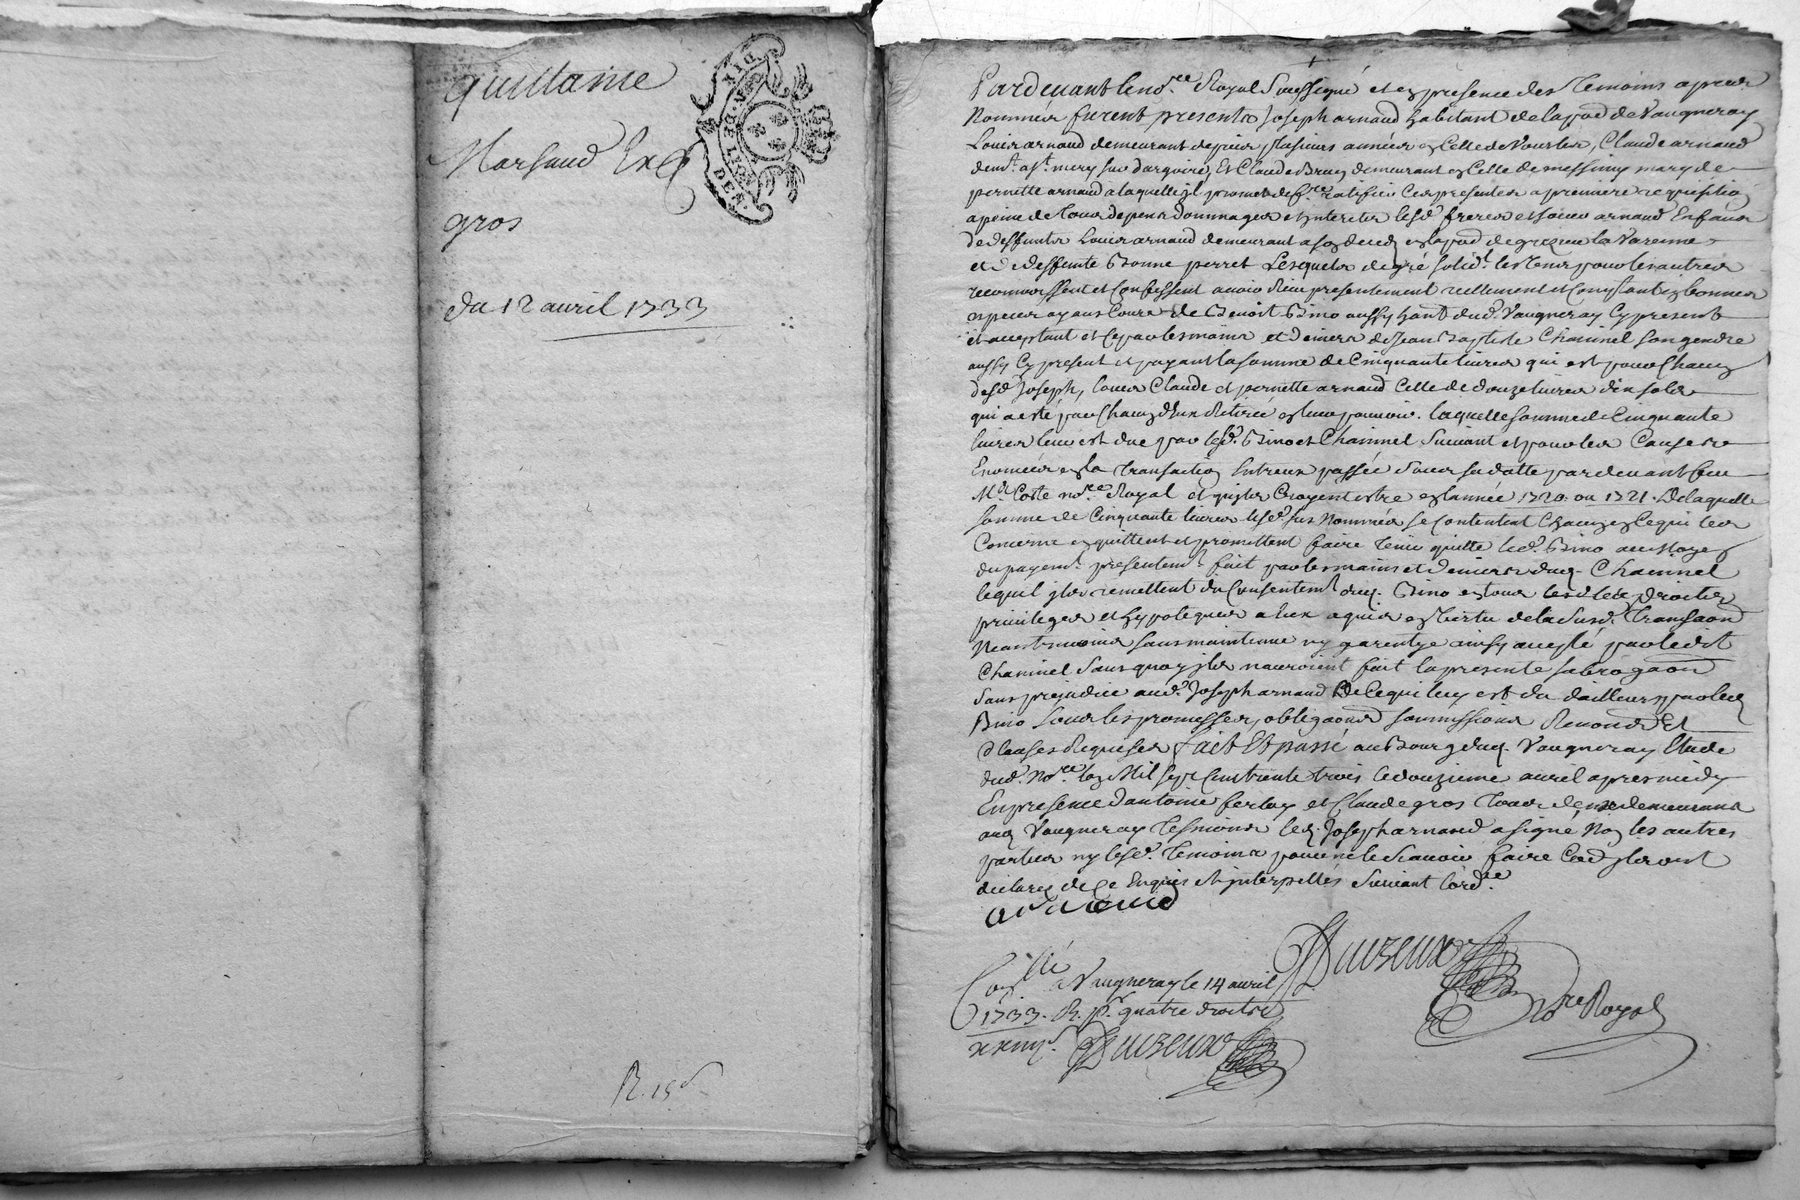 quittance
Marsaud Et
gros
du 12 avril 1733
R. 15s
GEN. DE LYON
DEUX
Pardevant le no.re Royal Soussigné et en presence des Temoins apres
Nommés furent presents Joseph arnaud habitant de la parr de Vaugneray
Louis arnaud demeurant depuis plusieurs années en Celle de Vourles, Claude arnaud
dem.t a s.t mery sur dargoire, Et Claude Brun demeurant en Celle de messimy mary de
pernette arnaud a laquelle il promet de f.re ratifier Ces presentes a premiere requisition
a peine de Tous depens dommages et interets lesd. freres et soeur arnaud Enfans
de deffunts Louis arnaud demeurant a son deces en la parr de gresieu la Varenne
et de deffunte Bonne perret Lesquels de gré solid.t les uns pour les autres
reconnoissent et Confessent avoir Reçu presentement reellement et Comptant en bonnes
especes ayant Cours de Benoit Bino aussy habt dud. Vaugneray Cy present
et acceptant et Ce par les mains et deniers de Jean Baptiste Chaninel son gendre
aussy Cy present et payant la somme de Cinquante livres qui est pour Chacun
desd. Joseph, Louis Claude et pernette arnaud Celle de douze livres dix sols
qui a esté par Chacun d'Eux Retirée en leur pouvoir. laquelle somme de Cinquante
livres leur est due par lesd. Bino et Chaninel Suivant et pour les Causes
Enoncées en la Transaction Entreux passée sous sa datte pardevant feu
M.e Coste no.re Royal et qu'ils Croyent estre en lannée 1720 ou 1721. De laquelle
somme de Cinquante livres lesd. sus Nommés se Contentent Chacun en Ce qui les
Concerne en quittent et promettent faire Tenir quitte led. Bino au moyen
du payem.t presentem.t fait par les mains et deniers dud. Chaninel
lequel ils remettent du Consentem.t dud. Bino en tous leurs droits
privileges et hypoteques a Eux acquis en Vertu de la Susd. Transaon
Neantmoins sans maintenue ny garentye ainsy accepté par ledit
Chaninel Sans quoy ils nauroient fait la presente subrogaon
Sans prejudice aud. Joseph arnaud De Ce qui luy est du dailleurs par led.
Bino Sous les promesses, obligaons soumissions Renons Et
Clauses Requises fait Et passé au Bourg dud. Vaugneray Etude
dud. No.re lan Mil sept Cent trente trois le douzieme avril apres midy
En presence dantoine ferlay et Claude gros Tous deux demeurans
aud. Vaugneray Tesmoins led. Joseph arnaud a signé Non les autres
parties ny lesd. Temoins pour ne le Scavoir faire Comme ils ont
declaré de Ce Enquis et interpellés Suivant lord.ce
arnaud
Duvreux
No.re Royal
Con.llé a Vaugneray le 14 avril
1733. R. p.r quatre droits
Duvreux